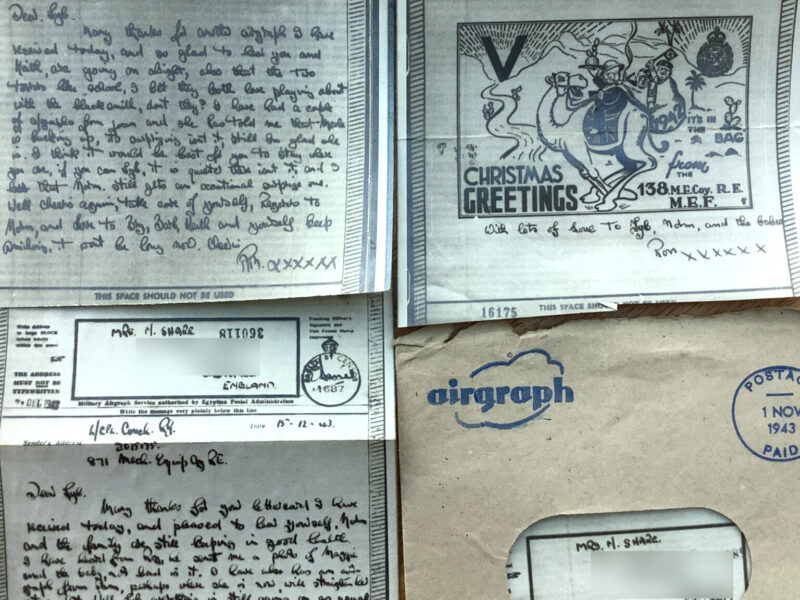 Dear Syb.
Many thanks for another airgraph I have
received today, and so glad to hear you and
Keith, are going on alright, also that the two
like school, I bet they both love playing about
with the blacksmith, don't they? I have had a couple
of airgraphs from and she has told me that
is bucking up, it's isn't it still I'm glad she
is. I think it would be best for you to stay where
you are, if you can Syb, it is quieter there isn't it, and I
hear that Mdm. still gets an occasional surprise one.
Well cheerio again, take care of yourself, Regards to
Mdm, and love to Keith and yourself keep
smiling, it won't be long now. Cheerio
Ron. xxxxxxx
THIS SPACE SHOULD NOT BE USED
V
1942
IT'S IN
THE
BAG
CHRISTMAS
GREETINGS
from
THE
138. M.E. Coy. R.E.
M.E.F.
With lots of love to Syb, Mdm, and the babies
Ron xxxxxxx
16175
THIS SPACE SHOULD NOT BE USED
Write Address
in large BLOCK
letters wholly
within this panel
THE ADDRESS
MUST NOT BE
TYPEWRITTEN
MRS. N. SHARE
360118
ENGLAND.
Examining Officer's
Signature and
Unit Censor Stamp
Military Airgraph Service authorised by Egyptian Postal Administration
Write the message very plainly below this line
Sender's Address
L/Cpl. Couch. R.
Date 15-12-42.
871 Mech. Equip Coy RE.
Dear Syb.
Many thanks for your letter card I have
received today, and pleased to hear yourself, Mdm
and the family are still keeping in good health.
I have heard from, he sent me a photo of Maggie
and the baby, isn't it. I have also had an air-
graph from, perhaps where she is now will straighten
is still going on as usual
airgraph
POSTAGE
1 NOV
1943
PAID
MRS. N. SHARE.